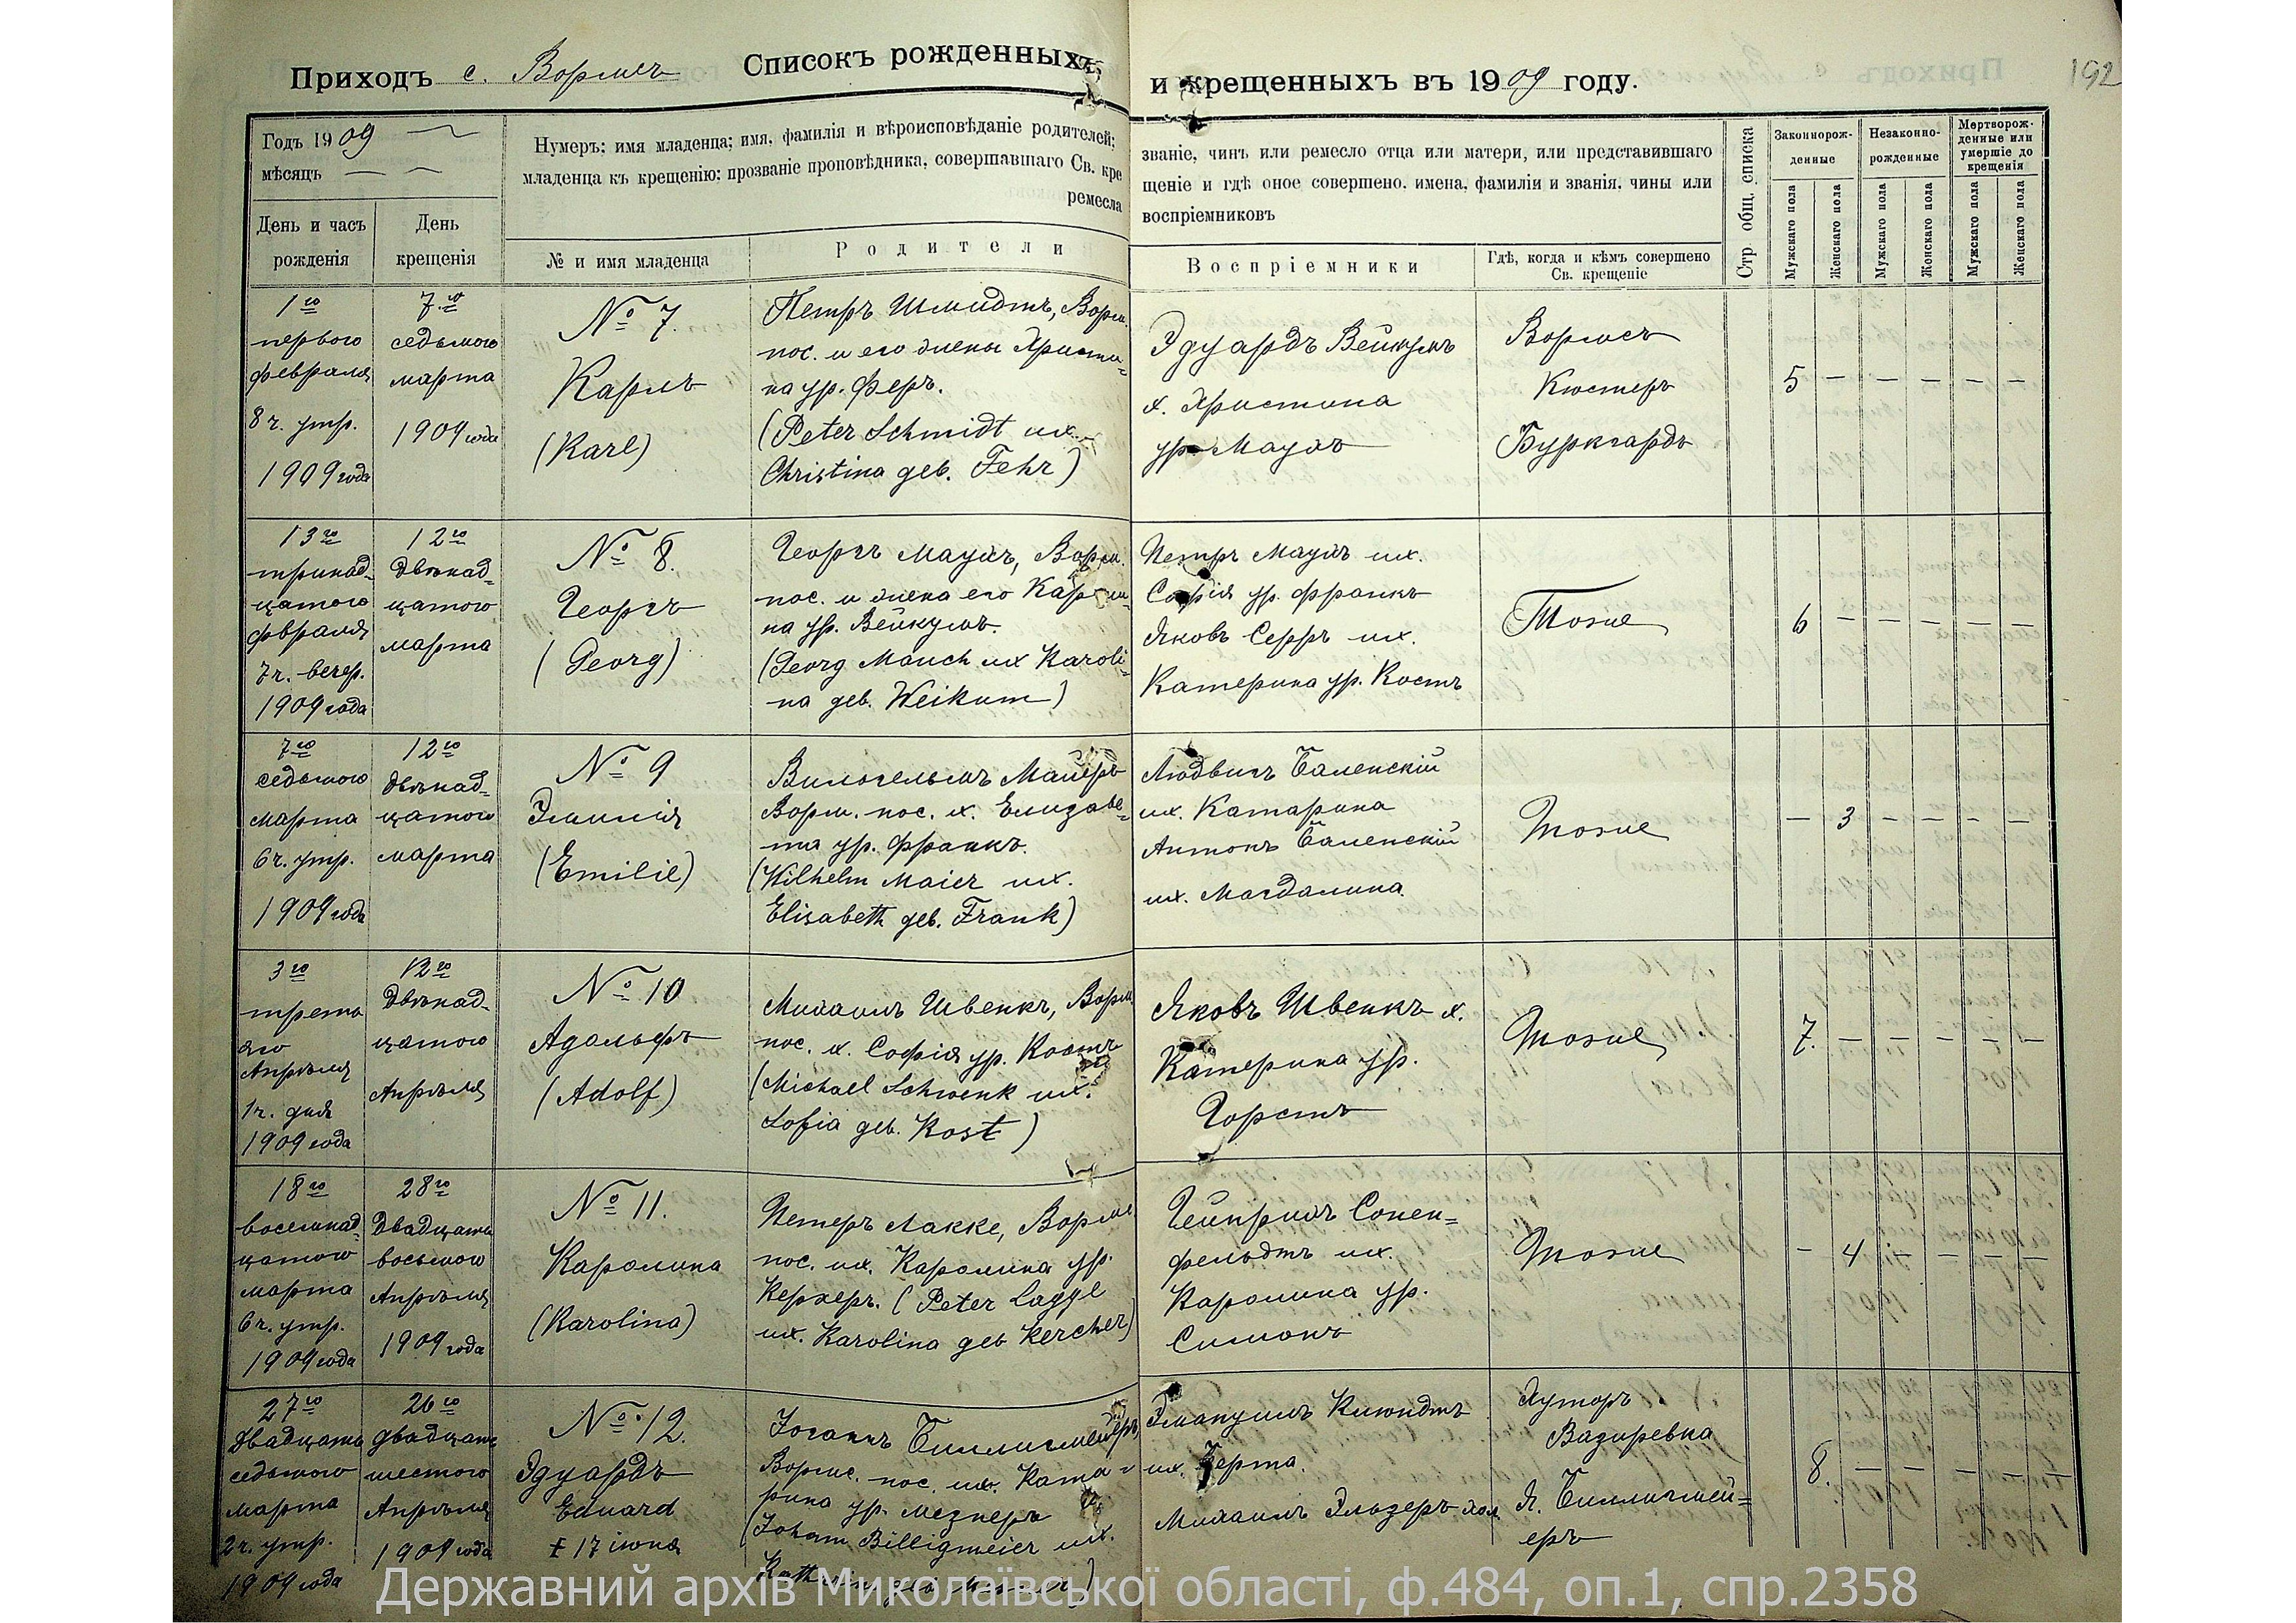 Приходъ с. Вормсъ Списокъ рожденныхъ и крещенныхъ въ 1909 году.
192
Годъ 1909
мѣсяцъ
День и часъ рожденія
День крещенія
Нумеръ; имя младенца; имя, фамилія и вѣроисповѣданіе родителей; званіе, чинъ или ремесло отца или матери, или представившаго
младенца къ крещенію; прозваніе проповѣдника, совершавшаго Св. крещеніе и гдѣ оное совершено, имена, фамиліи и званія, чины или
ремесла воспріемниковъ
№ и имя младенца
Родители
Воспріемники
Гдѣ, когда и кѣмъ совершено Св. крещеніе
Стр. общ. списка
Законнорожденные
Незаконнорожденные
Мертворожденные или умершіе до крещенія
Мужскаго пола
Женскаго пола
Мужскаго пола
Женскаго пола
Мужскаго пола
Женскаго пола
1го
первого
февраля
8 ч. утр.
1909 года
7го
седьмого
марта
1909 года
№ 7.
Карлъ
(Karl)
Петръ Шмидтъ, Ворм.
пос. и его жены Христи=
на ур. Феръ.
(Peter Schmidt их.
Christina geb. Fehr)
Эдуардъ Вейкумъ
х. Христина
ур. Маухъ
Вормсъ
Кюстеръ
Буркгардъ
5 — — — — —
13го
тринад=
цатого
февраля
7 ч. вечер.
1909 года
12го
двѣнад=
цатого
марта
№ 8.
Георгъ
(Georg)
Георгъ Маухъ, Ворм.
пос. и жена его Кароли=
на ур. Вейкумъ.
(Georg Mauch их Karoli=
na geb. Weikum)
Петръ Маухъ их.
Софія ур. Франкъ
Яковъ Серръ их.
Катерина ур. Костъ
Тоже
6 — — — — —
7го
седьмого
марта
6 ч. утр.
1909 года
12го
двѣнад=
цатого
марта
№ 9
Эмилія
(Emilie)
Вильгельмъ Майеръ
Ворм. пос. х. Елизаве=
та ур. Франкъ.
(Wilhelm Maier их.
Elisabeth geb. Frank)
Людвигъ Баленскій
их. Катарина
Антонъ Баленскій
их. Магдалина.
Тоже
— 3 — — — —
3го
треть
яго
Апрѣля
1 ч. дня
1909 года
12го
двѣнад=
цатого
Апрѣля
№ 10
Адольфъ
(Adolf)
Михаилъ Швенкъ, Ворм.
пос. х. Софія ур. Костъ
(Michael Schwenk их.
Sofia geb. Kost)
Яковъ Швенкъ х.
Катерина ур.
Горстъ
Тоже
7. — — — — —
18го
восемнад=
цатого
марта
6 ч. утр.
1909 года
28го
двадцать
восьмого
Апрѣля
1909 года
№ 11.
Каролина
(Karolina)
Петеръ Лакке, Вормс.
пос. их. Каролина ур.
Керхеръ. (Peter Laggl
их. Karolina geb Kercher)
Гейнрихъ Сонен=
фельдтъ их.
Каролина ур.
Симонъ
Тоже
— 4 — — — —
27го
двадцать
седьмого
марта
2 ч. утр.
1909 года
26го
двадцать
шестого
Апрѣля
1909 года
№ 12.
Эдуардъ
Eduard
17 іюня
Іоганнъ Биллигмейеръ,
Вормс. пос. их. Ката=
рина ур. Мезнеръ
(Johann Billigmeier их.
Эмануилъ Клюндтъ
их. Берта.
Михаилъ Эльзеръ хол
Хуторъ
Вазиревка
Я. Биллигмей=
еръ
8. — — — — —
Державний архів Миколаївської області, ф.484, оп.1, спр.2358